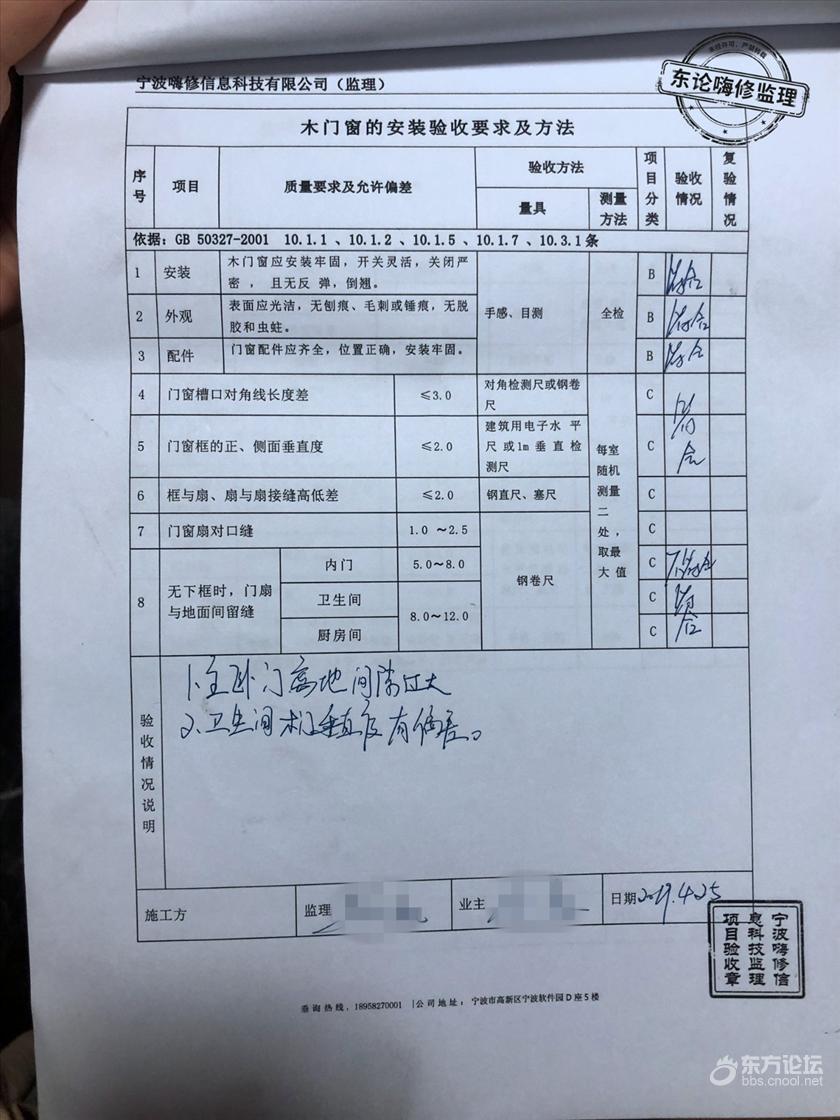 宁波嗨修信息科技有限公司（监理）
未经许可，严禁转载
东论嗨修监理
木门窗的安装验收要求及方法
序号 项目 质量要求及允许偏差 验收方法 项目分类 验收情况 复验情况
量具 测量方法
依据：GB 50327-2001 10.1.1 、10.1.2 、10.1.5 、10.1.7 、10.3.1条
1 安装 木门窗应安装牢固，开关灵活，关闭严密 ， 且无反 弹，倒翘。 B 符合
2 外观 表面应光洁，无刨痕、毛刺或锤痕，无脱胶和虫蛀。 手感、目测 全检 B 符合
3 配件 门窗配件应齐全，位置正确，安装牢固。 B 符合
4 门窗槽口对角线长度差 ≤3.0 对角检测尺或钢卷尺 每室随机测量二处，取最大值 C
5 门窗框的正、侧面垂直度 ≤2.0 建筑用电子水 平尺或1m垂直检测尺 C 符合
6 框与扇、扇与扇接缝高低差 ≤2.0 钢直尺、塞尺 C
7 门窗扇对口缝 1.0 ～2.5 钢卷尺 C
8 无下框时，门扇与地面间留缝 内门 5.0～8.0 C 不符合
卫生间 8.0～12.0 C 符合
厨房间 C
验收情况说明
1、主卧门离地间隙过大
2、卫生间木门垂直度有偏差。
施工方 监理 业主 日期 2019.4.25
宁波嗨修信息科技监理项目验收章
垂询热线，18958270001 |公司地址：宁波市高新区宁波软件园D座5楼
东方论坛
bbs.cnool.net